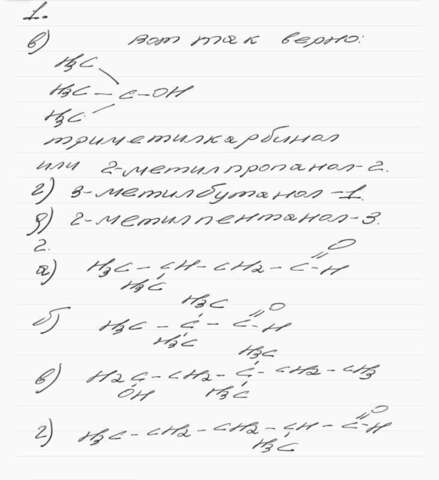 1.
в) вот так верно:
H3C
H3C – C – OH
H3C
триметилкарбинол
или 2-метилпропанол-2.
г) 3-метилбутанол-1.
д) 2-метилпентанол-3.
2.
а) H3C – CH – CH2 – C = O – H
H3C
H3C
б) H3C – C – C = O – H
H3C
H3C
в) H2C – CH2 – C – CH2 – CH3
OH H3C
г) H3C – CH2 – CH2 – CH – C = O – H
H3C